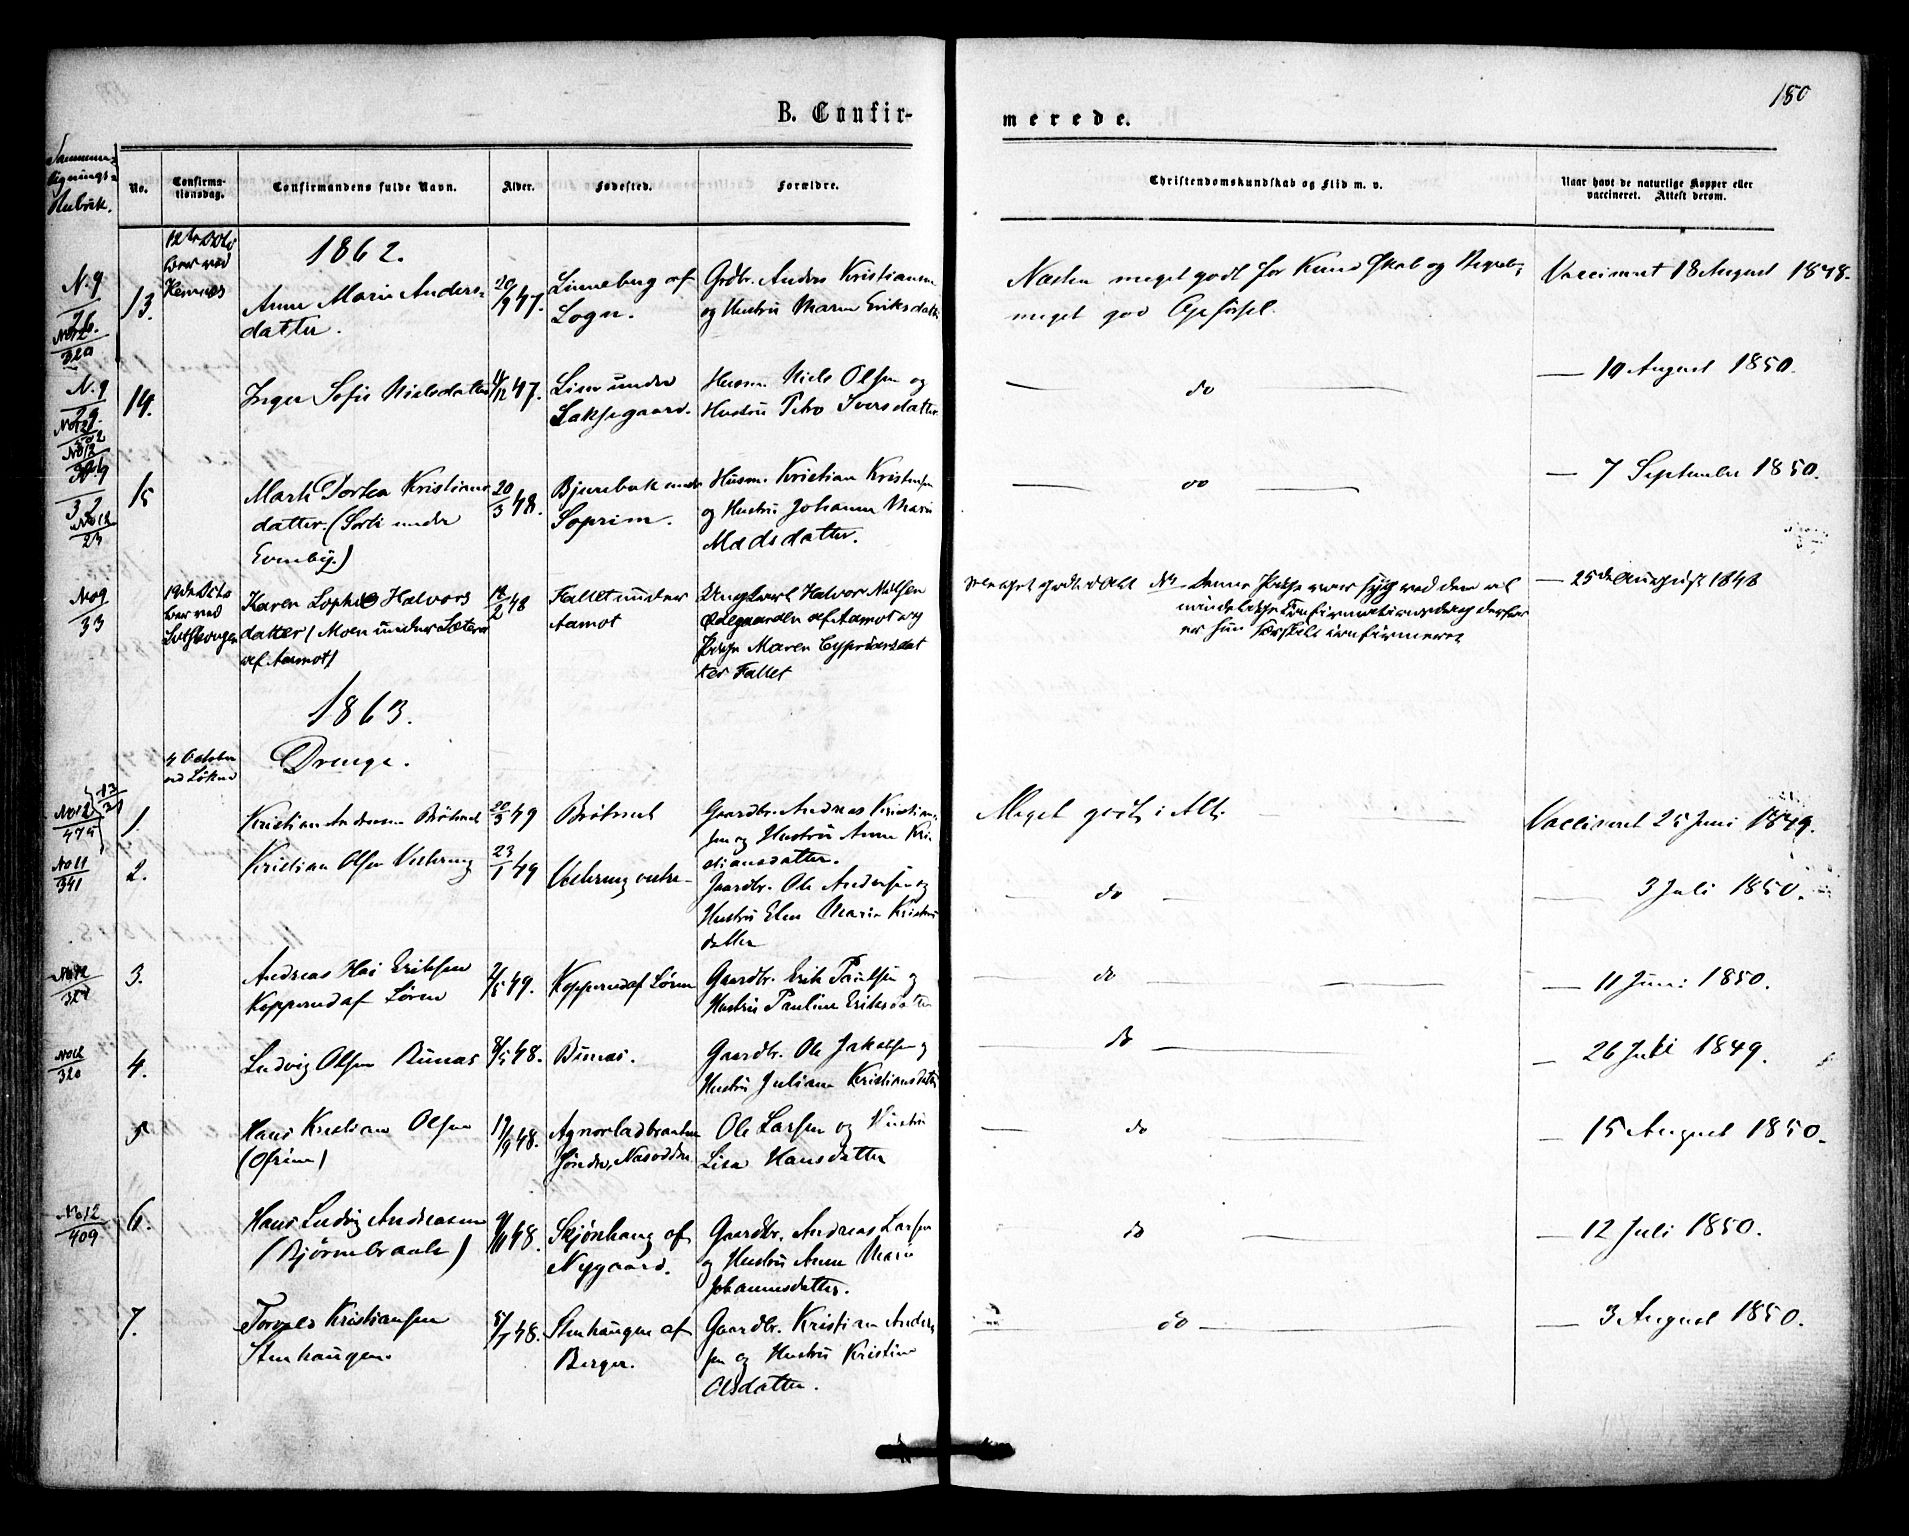 180
B. Confir-
merede.
Sammen-
lignings-
Rubrik.
No.
Confirma-
tionsdag.
Confirmandens fulde Navn.
Alder.
Fødested.
Forældre.
Christendomskundskab og Flid m. v.
Naar havt de naturlige Kopper eller
vaccineret. Attest derom.
1862.
N. 9
76.
No 12
320
13.
12te Octo
ber ved
Hemnes
Anne Marie Anders-
datter.
20/9 47.
Linneberg af
Logn.
Grdbr. Anders Kristiansen
og Hustru Maren Eriksdatter
Næsten meget godt for Kundskab og
meget god Opførsel.
Vaccineret 18 August 1848.
N. 9
29.
14.
Inger Sofie Nielsdatter
47.
Lien under
Laksegaard.
Husm. Niels Olsen og
Hustru Petro Iversdatter
do
— 10 August 1850.
No 12
32
No 12
23
15
Marte Dortea Kristians
datter. (Sorti under
Evenby.)
20/3 48.
Bjurebak under
Soprim.
Husm. Kristian Kristensen
og Hustru Johanne Marie
Madsdatter.
do
— 7 September 1850.
No 9
33
19de Octo
ber ved
Karen Lophie Halvors
datter / Moen under Sæteren
af Aamot /
18/2 48
Fallet under
Aamot
Ungkarl Halvor Nilsen
Ødegaarden af Aamot og
Pige Maren Cypriansdat
ter Fallet
meget godt i Alt
Denne Pige var syg ved den al
mindelige Confirmationsdag derfor
er hun særskilt confirmeret
— 25de August 1848
1863.
4 October
ved Løken
Drenge.
No 12
475
13
31
1.
Kristian Andersen Bråtnæs
20/3 49
Bråtnæs
Gaardbr. Andreas Kristian-
sen og Hustru Anne Kri-
stiansdatter.
Meget godt i Alt.
Vaccineret 25 Juni 1849.
No 11
341
2.
Kristian Olsen
23/1 49
Gaardbr. Ole Andersen og
Hustru Elen Marie Kristens
datter
do
3 Juli 1850.
No 12
3.
Andreas Hai Eriksen
Kopperud af Lören
49.
Kopperud af Lören
Gaardbr. Erik Paulsen og
Hustru Pauline Eriksdatter
do
— 11 Juni 1850.
No 12
320
4.
Ludvig Olsen Bunæs
8/5 48.
Bunæs.
Gaardbr. Ole Jakobsen og
Hustru Juliane Kristiansdatter
do
— 26 Juli 1849.
5
Hans Kristian Olsen
(Ofrim)
19/9 48.
Agnorladbraaten
Søndre, Nasodden
Ole Larsen og Hustru
Lisa Hansdatter
do
— 15 August 1850.
No 12
409
6.
Hans Ludvig Andreasen
(Bjørnebraate)
9/11 48.
Skjønhaug af
Nygaard.
Gaardbr. Andreas Larsen
og Hustru Anne Marie
Johannesdatter.
do
— 12 Juli 1850.
7.
Torvald Kristiansen
Stenhaugen.
5/7 48.
Stenhaugen af
Berger.
Gaardbr. Kristian Anders
sen og Hustru Kristine
Olsdatter.
do
— 3 August 1850.